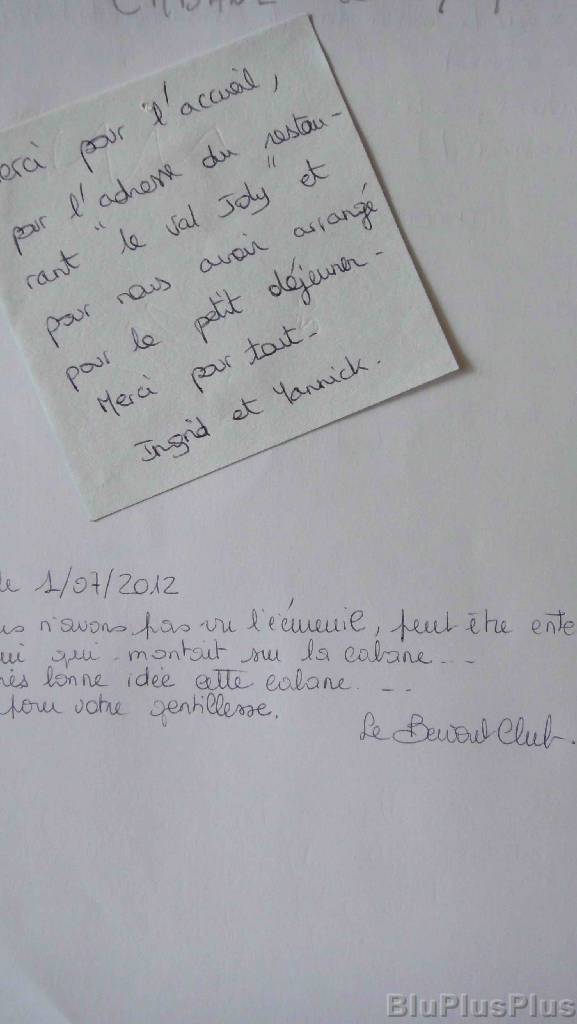 erci pour l'accueil,
pour l'adresse du restau-
rant "le Val Joly" et
pour nous avoir arrangé
pour le petit déjeuner-
Merci pour tout-
Ingrid et Yannick.
le 1/07/2012
us n'avons pas vu l'écureuil, peut être ente
ui qui montait sur la cabane...
rès bonne idée cette cabane...
pour votre gentillesse.
Le Club.
BluPlusPlus